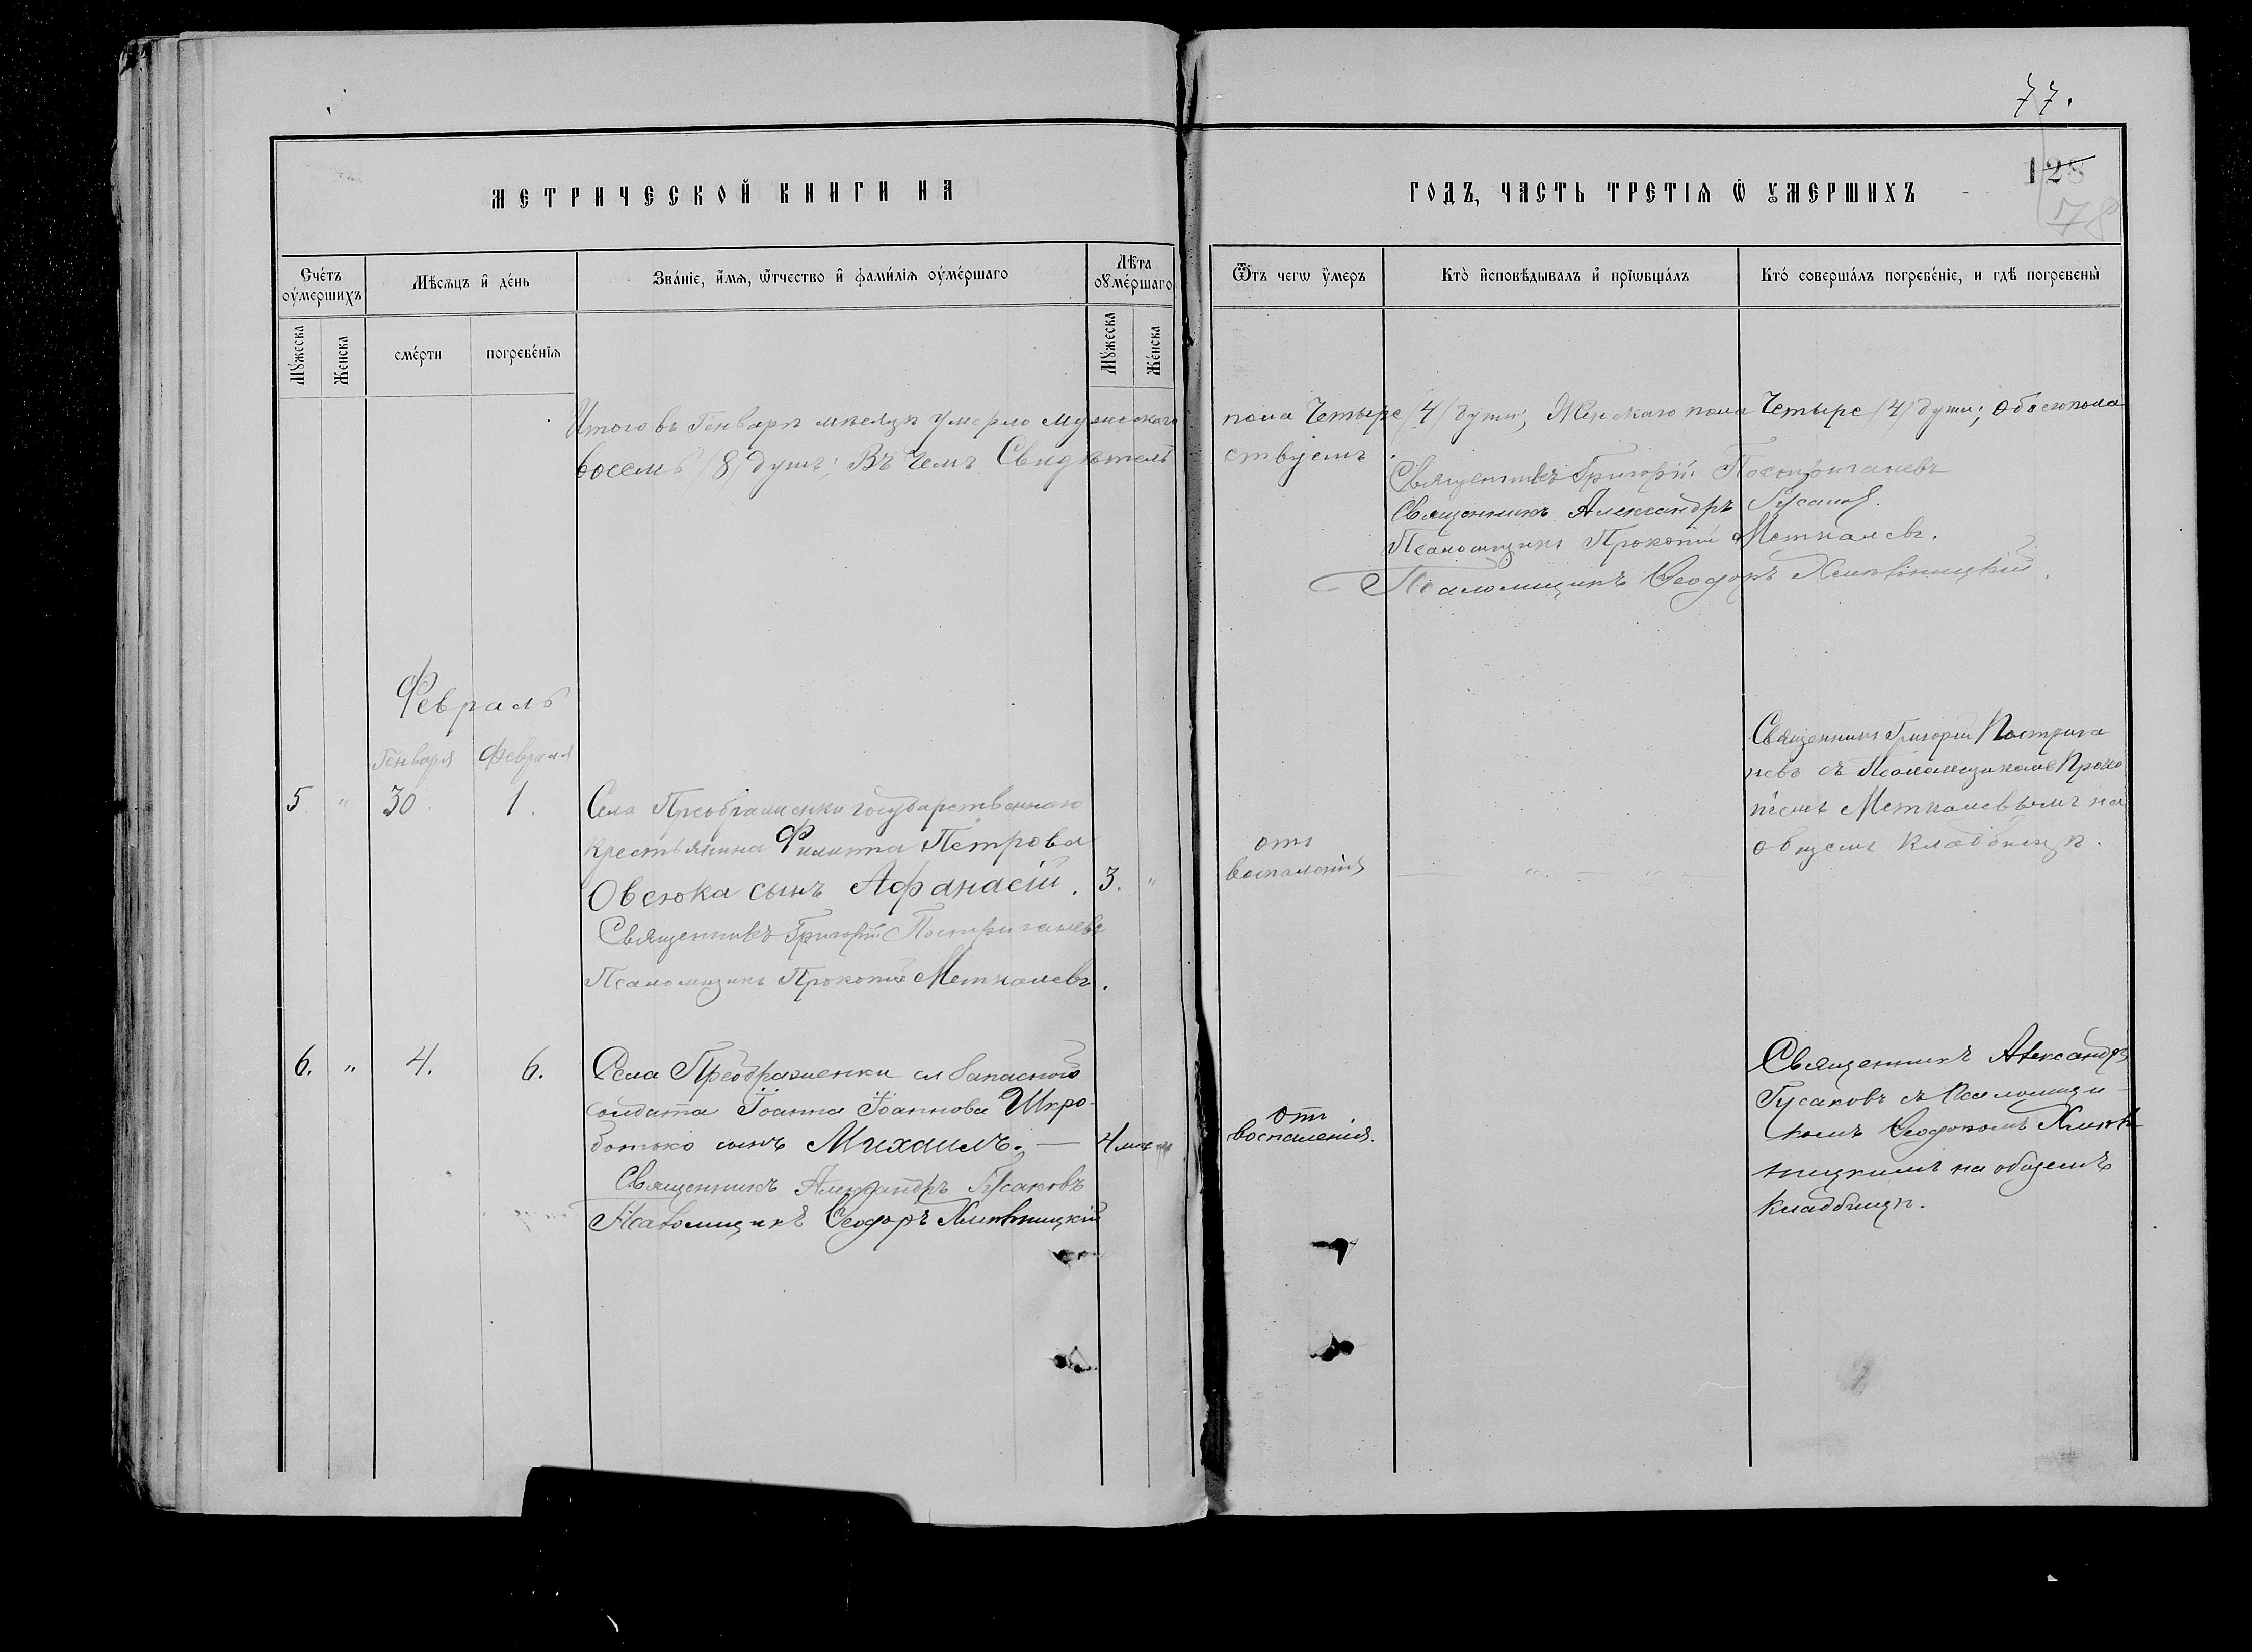 77.
128
78
МЕТРИЧЕСКОЙ КНИГИ НА
ГОДЪ, ЧАСТЬ ТРЕТІѦ Ѿ ꙊМЕРШИХЪ
Сче́тъ оу҆́мершихъ
Мѣсѧцъ и҆ де́нь
Зва́нїе, и҆́мѧ, ѻ҆́тчество и҆ фами́лїѧ оу҆ме́ршаго
Лѣ́та оу҆ме́ршаго
Ѿтъ чегѡ ᲂу҆́меръ
Кто̀ и҆сповѣ́дывалъ и҆ прїѡбща́лъ
Кто́ соверша́лъ погребе́нїе, и гдѣ̀ погребены̀
Мꙋ́жеска
Же́нска
сме́рти
погребе́нїѧ
Мꙋ́жеска
Же́нска
Итого въ Генварѣ мѣсяцѣ умерло мужескаго пола Четыре /4/ души; Женскаго пола Четыре /4/ души; обоего пола
восемь /8/ душъ; Въ чемъ Свидѣтельствуемъ
Священникъ Григорій Постригачевъ
Священникъ Александръ Гусаковъ.
Псаломщикъ Прокопій Меткалевъ.
Псаломщикъ Ѳеодоръ Хливницкій.
Февраль
Генваря Февраля
5 " 30. 1.
Села Преображенки государственнаго
крестьянина Филиппа Петрова
Овсюка сынъ Афанасій.
3. "
Священникъ Григорій Постригачевъ
Псаломщикъ Прокопій Меткалевъ.
отъ
воспаленія
" "
Священникъ Григорій Пострига
чевъ съ Псаломщикомъ Проко
піемъ Меткалевымъ на
общемъ кладбищѣ.
6. " 4. 6.
Села Преображенки запаснаго
солдата Іоанна Іоаннова Шкро-
ботько сынъ Михаилъ. —
4 мѣс
Священникъ Александръ Гусаковъ
Псаломщикъ Ѳеодоръ Хливницкій
Отъ
воспаленія.
Священникъ Александръ
Гусаковъ съ Псаломщи-
комъ Ѳеодоромъ Хлив
ницкимъ на общемъ
кладбищѣ.